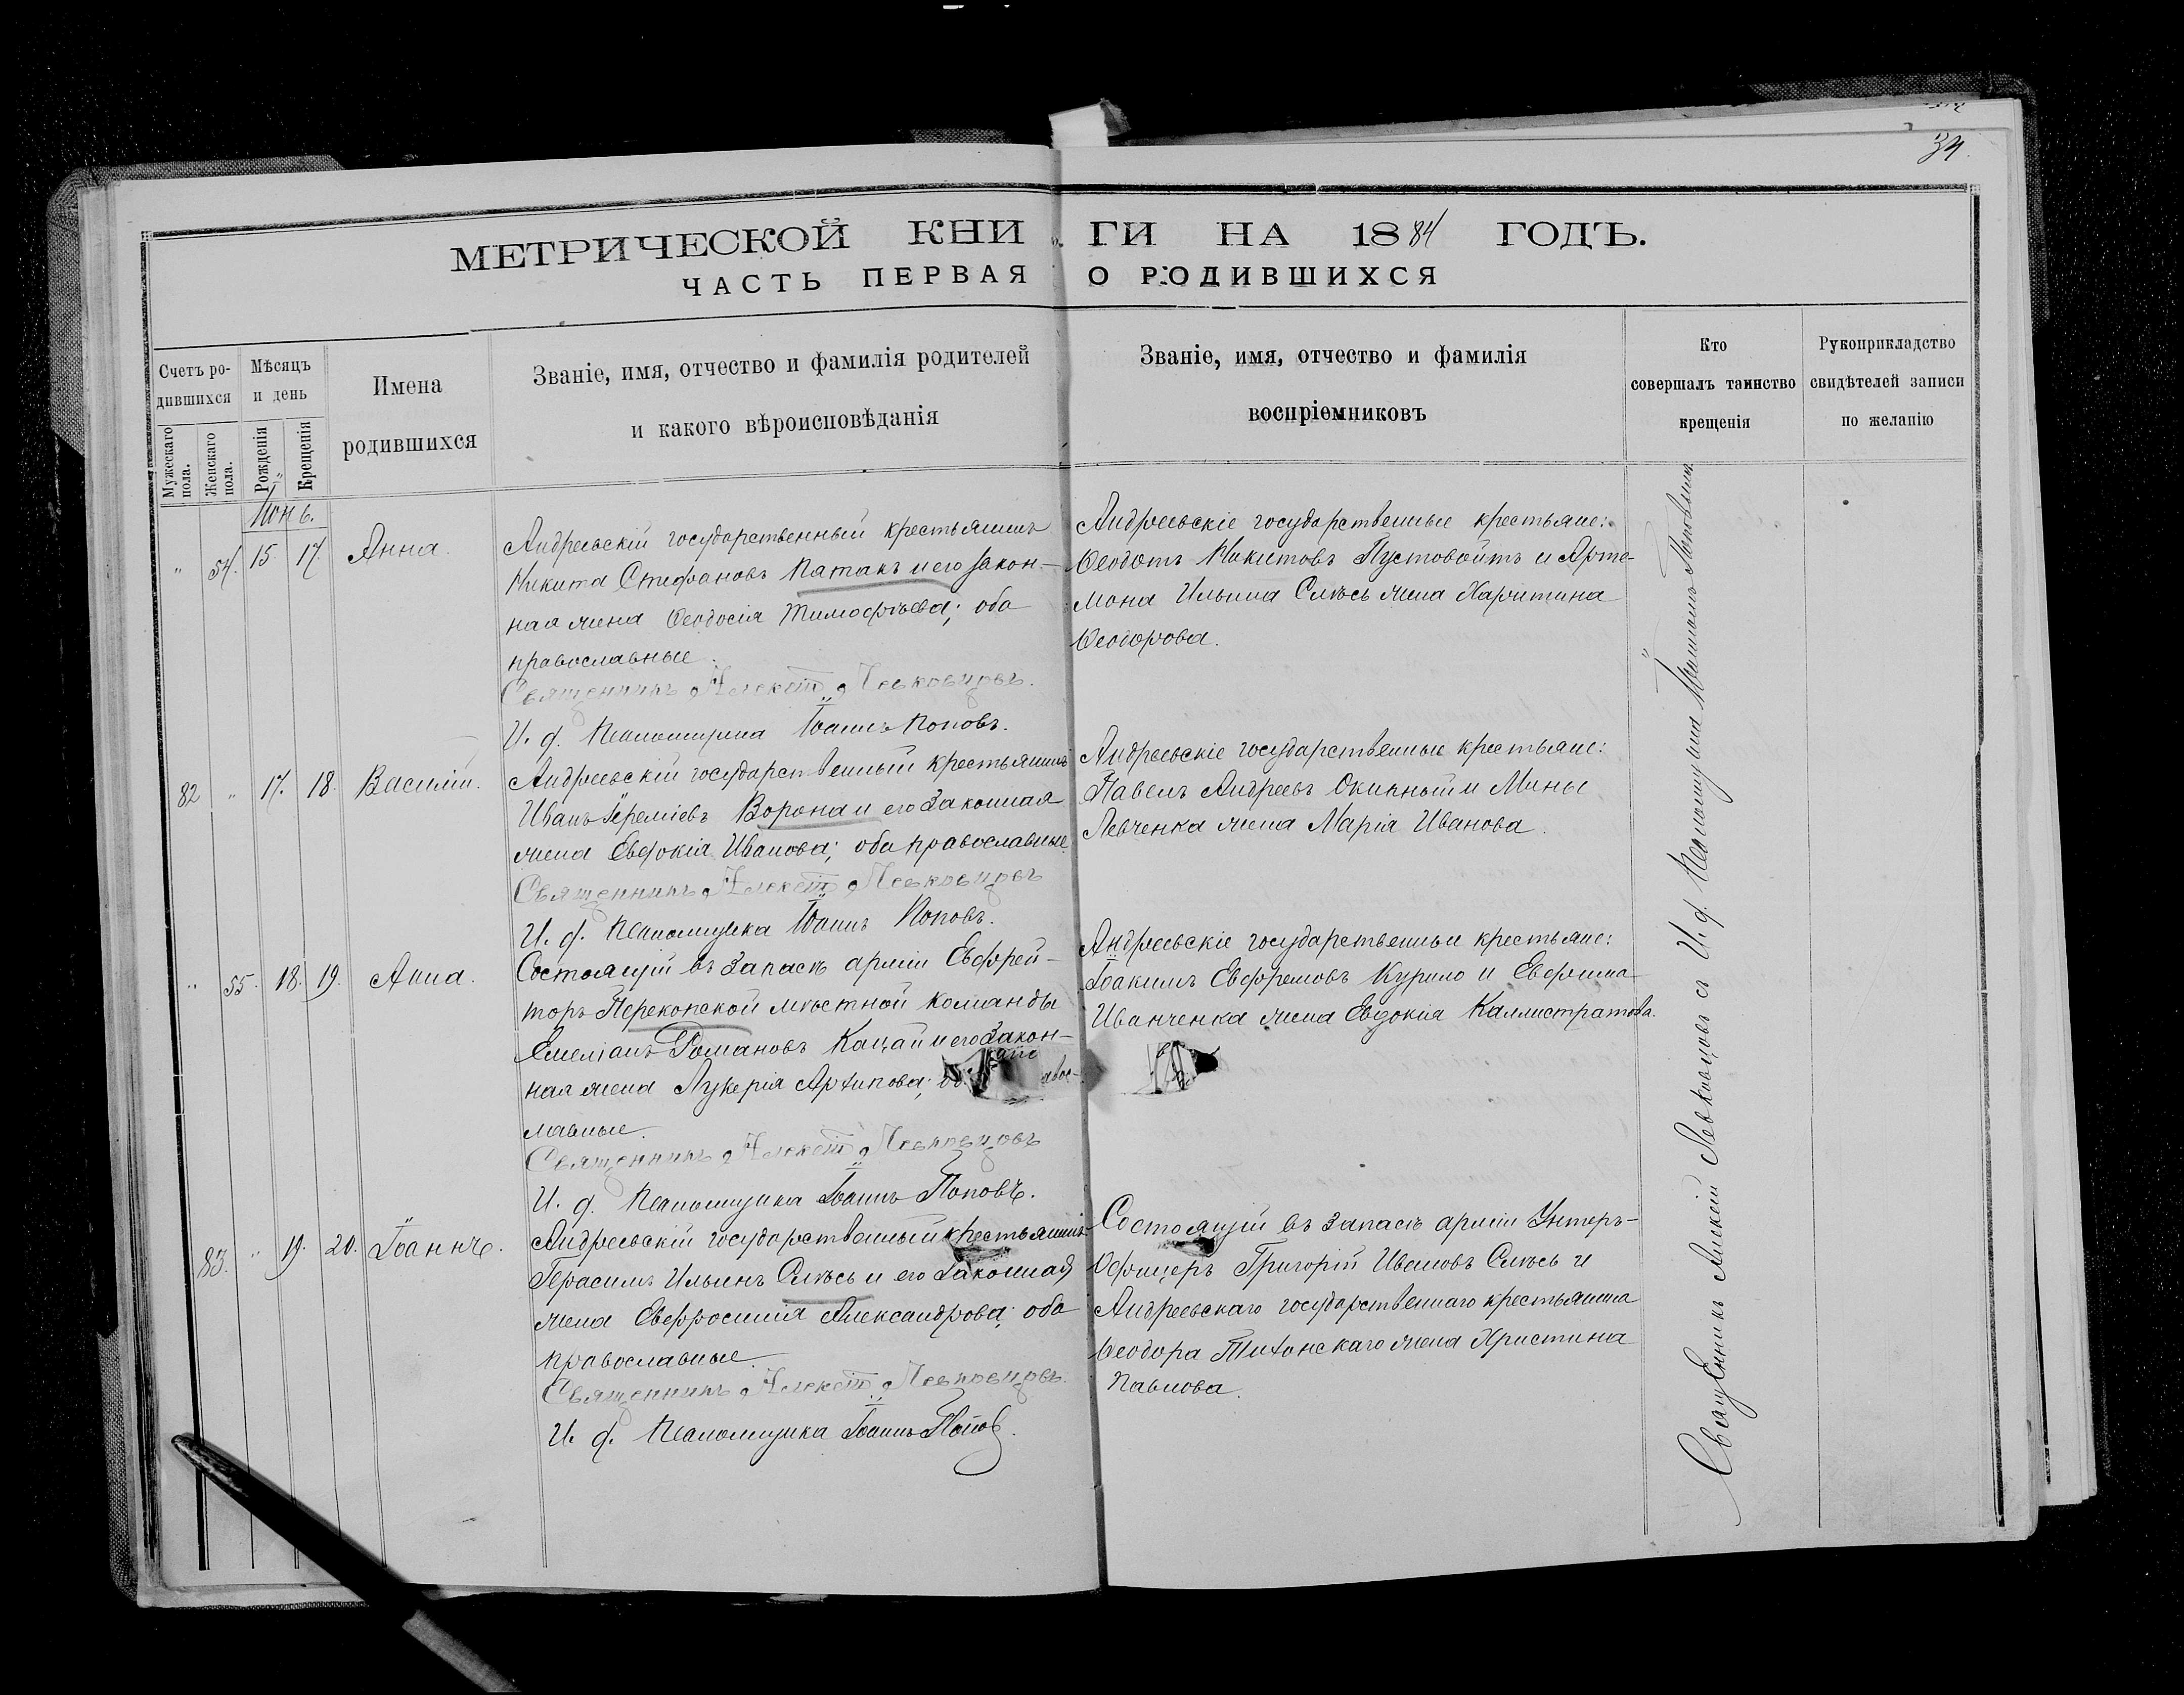 34.
МЕТРИЧЕСКОЙ КНИГИ НА 1884 ГОДЪ.
ЧАСТЬ ПЕРВАЯ О РОДИВШИХСЯ
Счетъ родившихся
Мужескаго пола.
Женскаго пола.
Мѣсяцъ и день
Рожденія
Крещенія
Имена
родившихся
Званіе, имя, отчество и фамилія родителей
и какого вѣроисповѣданія
Званіе, имя, отчество и фамилія
воспріемниковъ
Кто
совершалъ таинство
крещенія
Рукоприкладство
свидѣтелей записи
по желанію
" 54. 15. 17. Анна.
Андреевскій государственный крестьянинъ
Никита Стефановъ Патакъ и его закон-
ная жена Ѳеодосія Тимофѣева; оба
православные.
Священникъ Алексѣй Левковцовъ.
И. д. Псаломщика Іоаннъ Поповъ.
Андреевскіе государственные крестьяне:
Ѳеодотъ Никитовъ Пустовойтъ и Арте-
мона Ильина Смѣсь жена Харитина
Ѳеодорова.
82 " 17. 18. Василій.
Андреевскій государственный крестьянинъ
Иванъ Іереміевъ Ворона и его законная
жена Евдокія Иванова; оба православные.
Священникъ Алексѣй Левковцовъ
И. д. Псаломщика Іоаннъ Поповъ.
Андреевскіе государственные крестьяне:
Павелъ Андреевъ и Мины
Левченка жена Марія Иванова.
" 55. 18. 19. Анна.
Состоящій въ запасѣ арміи Ефрей-
торъ Перекопской мѣстной команды
Емеліанъ Романовъ Кацай и его закон-
ная жена Лукерія Архипова;
лавные.
Священникъ Алексѣй Левковцовъ
И. д. Псаломщика Іоаннъ Поповъ.
Андреевскіе государственные крестьяне:
Іоакимъ Ефремовъ Курило и Евфима
Иванченка жена Евдокія Каллистратова.
83. " 19. 20. Іоаннъ.
Андреевскій государственный крестьянинъ
Герасимъ Ильинъ Смѣсь и его законная
жена Евфросинія Александрова; оба
православные.
Священникъ Алексѣй Левковцовъ.
И. д. Псаломщика Іоаннъ Поповъ.
Состоящій въ запасѣ арміи Унтеръ-
Офицеръ Григорій Ивановъ Смѣсь и
Андреевскаго государственнаго крестьянина
Ѳеодора Тихонскаго жена Христина
Павлова.
Священникъ Алексій Левковцовъ съ И. д. Псаломщика Іоанномъ Поповымъ